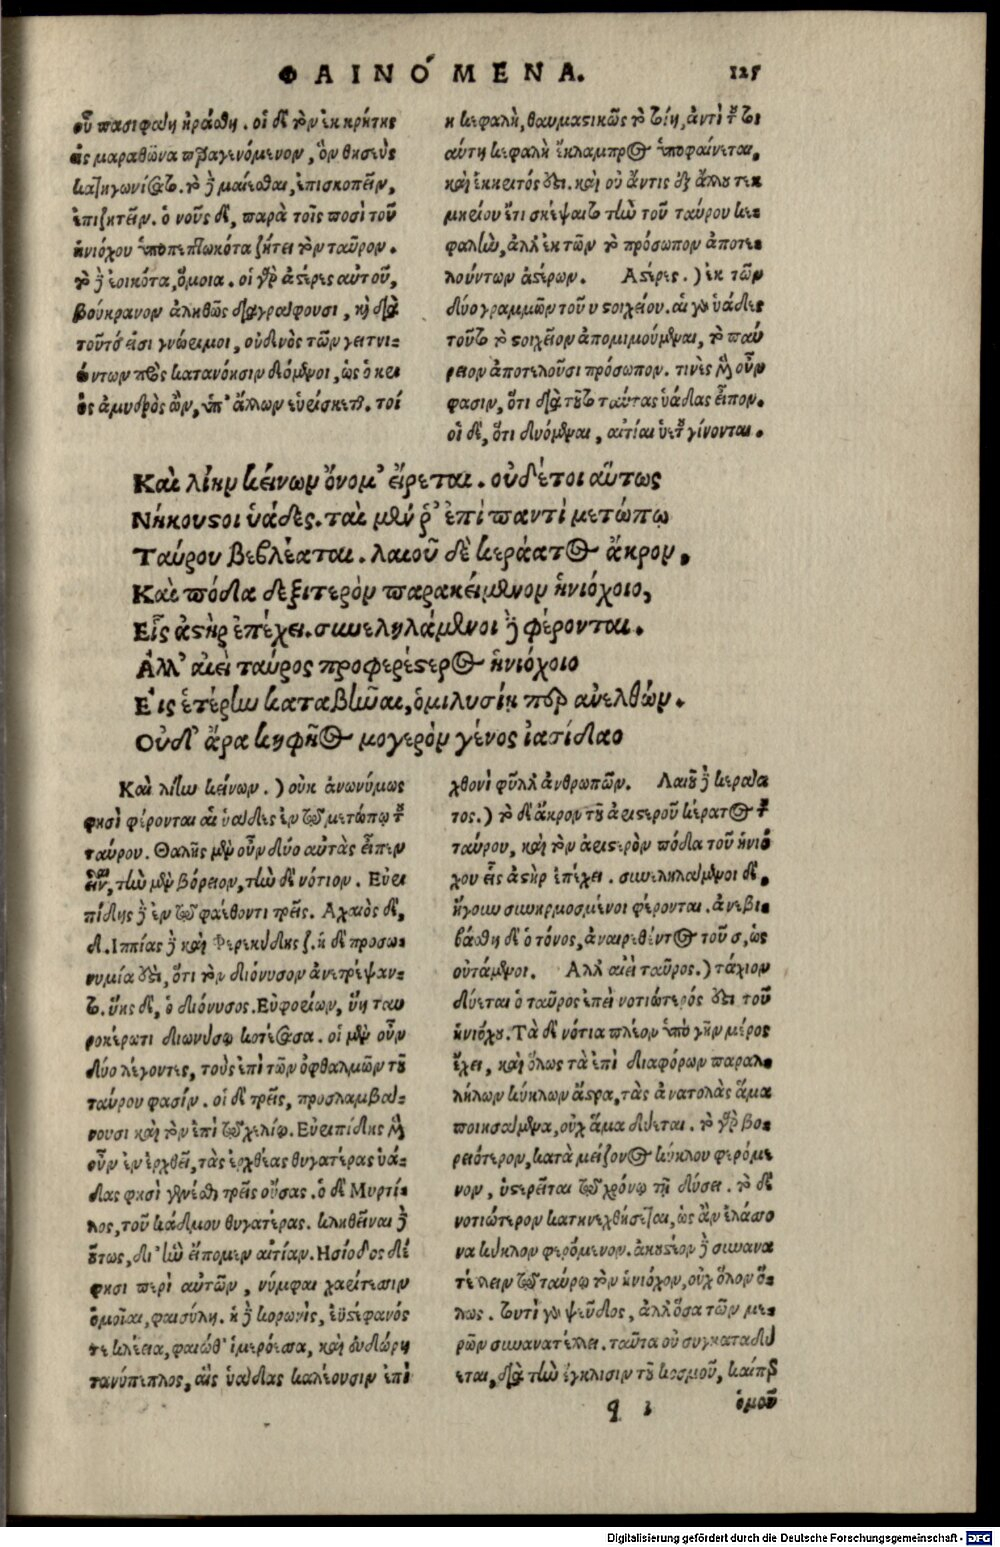 ΦΑΙΝΌΜΕΝΑ. 125
οὗ πασιφάη ἠράσθη. οἱ δὲ τὸν ἐκ κρήτης
εἰς μαραθῶνα παραγενόμενον, ὃν θησεὺς
κατηγωνίσατο. τὸ δὲ μαίεσθαι, ἐπισκοπεῖν,
ἐπιζητεῖν. ὁ νοῦς δὲ, παρὰ τοῖς ποσὶ τοῦ
ἡνιόχου ὑποπεπτωκότα ζήτει τὸν ταῦρον.
τὸ δὲ ἐοικότα, ὅμοια. οἱ γὰρ ἀστέρες αὐτοῦ,
βούκρανον ἀληθῶς διαγράφουσι, καὶ διὰ
τοῦτό εἰσι γνώριμοι, οὐδενὸς τῶν γειτνι-
όντων πρὸς κατανόησιν δεόμενοι, ὡς ὁ κρι
ὸς ἀμυδρὸς ὢν, ὑπ' ἄλλων εὑρίσκεται. τοί
η κεφαλὴ, θαυμαστικῶς τὸ τοίη, ἀντὶ τοῦ τοι
αύτη κεφαλὴ ἔκλαμπρος ὑποφαίνεται,
καὶ ἔκκριτός ἐστι. καὶ οὐ ἄν τις ἐξ ἄλλου τεκ
μηρίου ἔτι σκέψαιτο τὴν τοῦ ταύρου κε-
φαλὴν, ἀλλ' ἐκ τῶν τὸ πρόσωπον ἀποτε-
λούντων ἀστέρων. Ἀστέρες.) ἐκ τῶν
δύο γραμμῶν τοῦ υ στοιχείου. αἱ γὰρ ὑάδες
τοῦτο τὸ στοιχεῖον ἀπομιμούμεναι, τὸ ταύ
ρειον ἀποτελοῦσι πρόσωπον. τινὲς μὲν οὖν
φασιν, ὅτι διὰ τοῦτο ταύτας ὑάδας εἶπον.
οἱ δὲ, ὅτι δυόμεναι, αἰτίαι ὑετοῦ γίνονται.
Καὶ λίην κείνων ὄνομ' εἴρεται. οὐδέ τοι αὔτως
Νήκουστοι ὑάδες. ταὶ μέν ῥ' ἐπὶ παντὶ μετώπῳ
Ταύρου βεβλέαται. λαιοῦ δὲ κεράατος ἄκρον,
Καὶ πόδα δεξιτερὸν παρακείμενον ἡνιόχοιο,
Εἷς ἀστὴρ ἐπέχει. συνεληλάμενοι δὲ φέρονται.
Ἀλλ' αἰεὶ ταῦρος προφερέστερος ἡνιόχοιο
Εἰς ἑτέρην καταβῆναι, ὁμηλυσίῃ περ ἀνελθών.
Οὐδ' ἄρα κηφῆος μογερὸν γένος ἰασίδαο
Καὶ λίην κείνων.) οὐκ ἀνωνύμως
φησὶ φέρονται αἱ ὑάδες ἐν τῷ μετώπῳ τοῦ
ταύρου. Θαλῆς μὲν οὖν δύο αὐτὰς εἶπεν
εἶναι, τὴν μὲν βόρειον, τὴν δὲ νότιον. Εὐρι
πίδης δὲ ἐν τῷ φαέθοντι τρεῖς. Ἀχαιὸς δὲ,
δ. Ἱππίας δὲ καὶ Φερεκύδης ζ. ἡ δὲ προσω-
νυμία ἐστὶ, ὅτι τὸν διόνυσον ἀνετρέψαν-
το. ὕης δὲ, ὁ διόνυσος. Εὐφορίων, ὕῃ ταυ
ροκέρωτι διωνύσῳ κοτέσασα. οἱ μὲν οὖν
δύο λέγοντες, τοὺς ἐπὶ τῶν ὀφθαλμῶν τοῦ
ταύρου φασίν. οἱ δὲ τρεῖς, προσλαμβά-
νουσι καὶ τὸν ἐπὶ τῷ χελίῳ. Εὐριπίδης μὲν
οὖν ἐν ἐρχθεῖ, τὰς ἐρχθέας θυγατέρας ὑά-
δας φησὶ γενέσθαι τρεῖς οὔσας. ὁ δὲ Μυρτί-
λος, τοῦ κάδμου θυγατέρας. κληθεῖναι δὲ
οὕτως, δι' ἣν εἴπομεν αἰτίαν. Ἡσίοδος δέ
φησι περὶ αὐτῶν, νύμφαι χαρίτεσσιν
ὁμοῖαι, φαισύλη. ἡ δὲ κορωνὶς, ἐϋστέφανός
τε κλέεια, φαιώθ' ἱμερόεσσα, καὶ εὐδώρη
τανύπεπλος, ἃς ὑάδας καλέουσιν ἐπὶ
χθονὶ φῦλλ' ἀνθρωπῶν. Λαιοῦ δὲ κεράα
τος.) τὸ δὲ ἄκρον τοῦ ἀριστεροῦ κέρατος τοῦ
ταύρου, καὶ τὸν ἀριστερὸν πόδα τοῦ ἡνιό
χου εἷς ἀστὴρ ἐπέχει. συνεληλάμενοι δὲ,
ἤγουν συνηρμοσμένοι φέρονται. ἀνεβι-
βάσθη δὲ ὁ τόνος, ἀναιρεθέντος τοῦ σ, ὡς
οὐτάμενοι. Ἀλλ' αἰεὶ ταῦρος.) τάχιον
δύεται ὁ ταῦρος ἐπεὶ νοτιώτερός ἐστι τοῦ
ἡνιόχου. Τὰ δὲ νότια πλέον ὑπὸ γῆν μέρος
ἔχει, καὶ ὅλως τὰ ἐπὶ διαφόρων παραλ-
λήλων κύκλων ἄστρα, τὰς ἀνατολὰς ἅμα
ποιησάμενα, οὐχ ἅμα δύεται. τὸ γὰρ βο-
ρειότερον, κατὰ μείζονος κύκλου φερόμε
νον, ὑστερεῖται τῷ χρόνῳ τῇ δύσει. τὸ δὲ
νοτιώτερον κατηνεχθήσεται, ὡς ἂν ἐλάσσο
να κύκλον φερόμενον. ἀκουστέον δὲ συνανα
τέλλειν τῷ ταύρῳ τὸν ἡνιόχον, οὐχ ὅλον ὅ-
λως. τουτὶ γὰρ ψεῦδος, ἀλλ' ὅσα τῶν με-
ρῶν συνανατέλλει. ταῦτα οὐ συγκαταδύ
εται, διὰ τὴν ἔγκλισιν τοῦ κοσμοῦ, καίπερ
q i ὁμοῦ
Digitalisierung gefördert durch die Deutsche Forschungsgemeinschaft - DFG